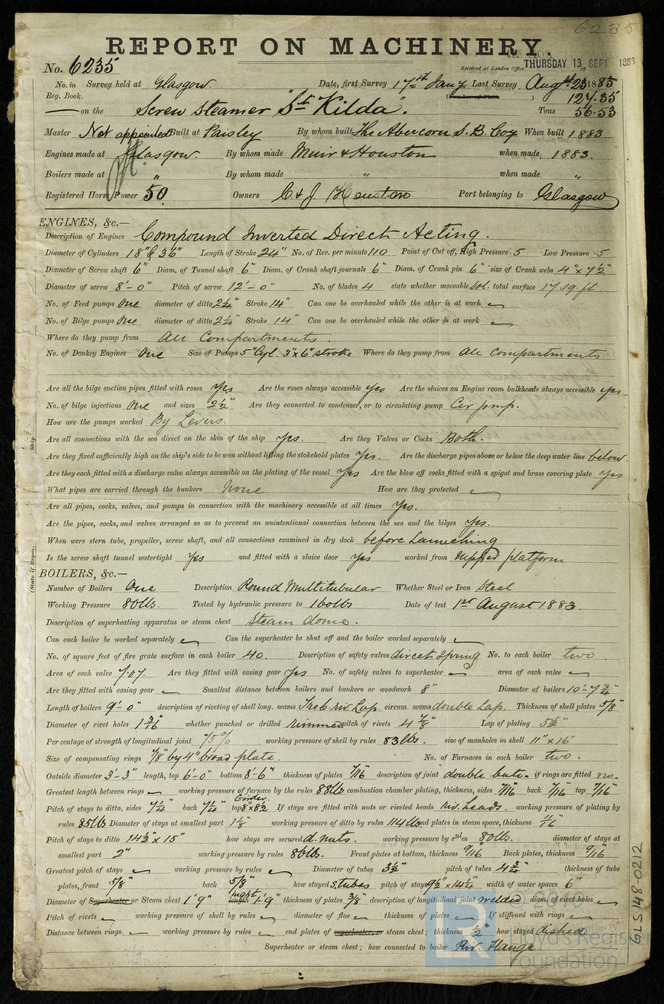 6235
REPORT ON MACHINERY.
No. 6235
Received at London Office THURSDAY 13 SEPT 1883
No. in Survey held at Glasgow Date, first Survey 17th Jany Last Survey Augst 23 1883
Reg. Book. 124.35
on the Screw Steamer "St Kilda". Tons 56.53
Master Not appointed Built at Paisley By whom built The Abercorn S. B. Coy When built 1883
Engines made at Glasgow. By whom made Muir & Houston when made 1883.
Boilers made at " By whom made " when made "
Registered Horse Power 50 Owners C & J Houston Port belonging to Glasgow
ENGINES, &c.—
Description of Engines Compound Inverted Direct Acting.
Diameter of Cylinders 18" & 36" Length of Stroke 24" No. of Rev. per minute 110 Point of Cut off, High Pressure .5 Low Pressure .5
Diameter of Screw shaft 6" Diam. of Tunnel shaft 6" Diam. of Crank shaft journals 6" Diam. of Crank pin 6" size of Crank webs 4" x 7½"
Diameter of screw 8'-0" Pitch of screw 12'-0" No. of blades 4 state whether moveable total surface 17 sq ft
No. of Feed pumps One diameter of ditto 2¼" Stroke 14" Can one be overhauled while the other is at work
No. of Bilge pumps One diameter of ditto 2¼" Stroke 14" Can one be overhauled while the other is at work
Where do they pump from All Compartments
No. of Donkey Engines One Size of Pumps 5" Cyl. 3" x 6" stroke Where do they pump from All compartments
Are all the bilge suction pipes fitted with roses Yes Are the roses always accessible Yes Are the sluices on Engine room bulkheads always accessible yes
No. of bilge injections One and sizes 2½" Are they connected to condenser, or to circulating pump Cir pmp.
How are the pumps worked By Levers
Are all connections with the sea direct on the skin of the ship Yes. Are they Valves or Cocks Both.
Are they fixed sufficiently high on the ship's side to be seen without lifting the stokehold plates Yes. Are the discharge pipes above or below the deep water line below
Are they each fitted with a discharge valve always accessible on the plating of the vessel Yes Are the blow off cocks fitted with a spigot and brass covering plate Yes
What pipes are carried through the bunkers None How are they protected
Are all pipes, cocks, valves, and pumps in connection with the machinery accessible at all times Yes.
Are the pipes, cocks, and valves arranged so as to prevent an unintentional connection between the sea and the bilges Yes.
When were stern tube, propeller, screw shaft, and all connections examined in dry dock before Launching
Is the screw shaft tunnel watertight Yes and fitted with a sluice door Yes worked from upper platform
BOILERS, &c.—
Number of Boilers One Description Round Multitubular Whether Steel or Iron Steel
Working Pressure 80lbs. Tested by hydraulic pressure to 160lbs Date of test 1st August 1883.
Description of superheating apparatus or steam chest Steam dome.
Can each boiler be worked separately Can the superheater be shut off and the boiler worked separately
No. of square feet of fire grate surface in each boiler 40. Description of safety valves direct Spring No. to each boiler two
Area of each valve 7.07 Are they fitted with easing gear Yes No. of safety valves to superheater area of each valve
Are they fitted with easing gear Smallest distance between boilers and bunkers or woodwork 8" Diameter of boilers 10'-7¼"
Length of boilers 9'-0" description of riveting of shell long. seams Treb riv Lap. circum. seams double Lap. Thickness of shell plates 5/8"
Diameter of rivet holes whether punched or drilled rimmed pitch of rivets 4 7/8" Lap of plating
Per centage of strength of longitudinal joint 75% working pressure of shell by rules 83lbs. size of manholes in shell 11" x 16"
Size of compensating rings 7/8" by 4" broad plate. No. of Furnaces in each boiler two.
Outside diameter 3'-3" length, top 6'-0" bottom 8'-6" thickness of plates 7/16 description of joint double butt if rings are fitted
Greatest length between rings working pressure of furnace by the rules 88lbs combustion chamber plating, thickness, sides 7/16 back 7/16 top 7/16"
Pitch of stays to ditto, sides 7¼" back 7¼" Girder 8 x 8½ If stays are fitted with nuts or riveted heads riv. heads. working pressure of plating by
rules 85lbs Diameter of stays at smallest part working pressure of ditto by rules 114lbs end plates in steam space, thickness
Pitch of stays to ditto 14½ x 15" how stays are secured d. nuts. working pressure by rules 80lb. diameter of stays at
smallest part 2" working pressure by rules 86lbs. Front plates at bottom, thickness 9/16 Back plates, thickness 9/16"
Greatest pitch of stays working pressure by rules Diameter of tubes 3½" pitch of tubes 4¾" thickness of tube
plates, front 5/8" back 5/8" how stayed S. tubes pitch of stays 9½" x 14¼" width of water spaces 6"
Diameter of Superheater or Steam chest 1'-9" height length 1'-9" thickness of plates 3/8 description of longitudinal joint welded diam. of rivet holes
Pitch of rivets working pressure of shell by rules diameter of flue thickness of plates If stiffened with rings
Distance between rings working pressure by rules end plates of superheater, or steam chest; thickness ½" how stayed dished
Superheater or steam chest; how connected to boiler Riv. Flange
(State if Report)
Ship
GLS148-0212
© 2020
Lloyd's Register
Foundation